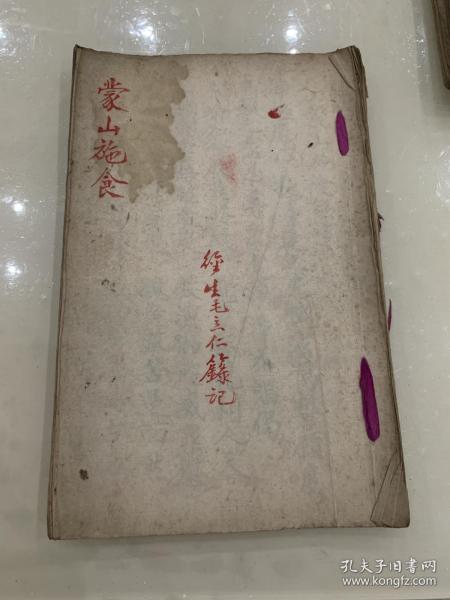 蒙山施食
經生毛立仁籙記
孔夫子旧书网
www.kongfz.com